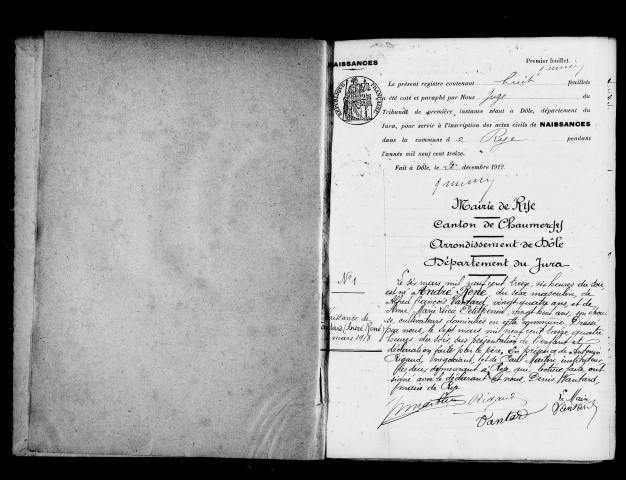 NAISSANCES
Premier feuillet.
Le présent registre contenant huit feuillets
a été coté et paraphé par Nous Juge du
Tribunal de première instance séant à Dôle, département du
Jura, pour servir à l'inscription des actes civils de NAISSANCES
dans la commune de Rye pendant
l'année mil neuf cent treize.
Fait à Dôle, le décembre 1912.
RÉPUBLIQUE FRANÇAISE
Mairie de Rye
Canton de Chaumergy
Arrondissement de Dôle
Département du Jura
N° 1
Naissance de
Vantard (André René)
mars 1913
Le six mars mil neuf cent treize, six heures du soir
est né André René du sexe masculin, de
Alfred François Vantard, vingt quatre ans, et de
Anne Marie Lucie, vingt huit ans, son épou-
se, cultivateurs domiciliés en cette commune. Dressé
par nous, le sept mars mil neuf cent treize quatre
heures du soir, sur présentation de l'enfant et
déclaration faite par le père, en présence de
Rigaud, négociant, et de Paul Martin, instituteur
tous deux demeurant à Rye, qui, lecture faite, ont
signé avec le déclarant et nous, Denis Vantard,
maire de Rye
Martin Rigaud Le Maire
Vantard Vantard